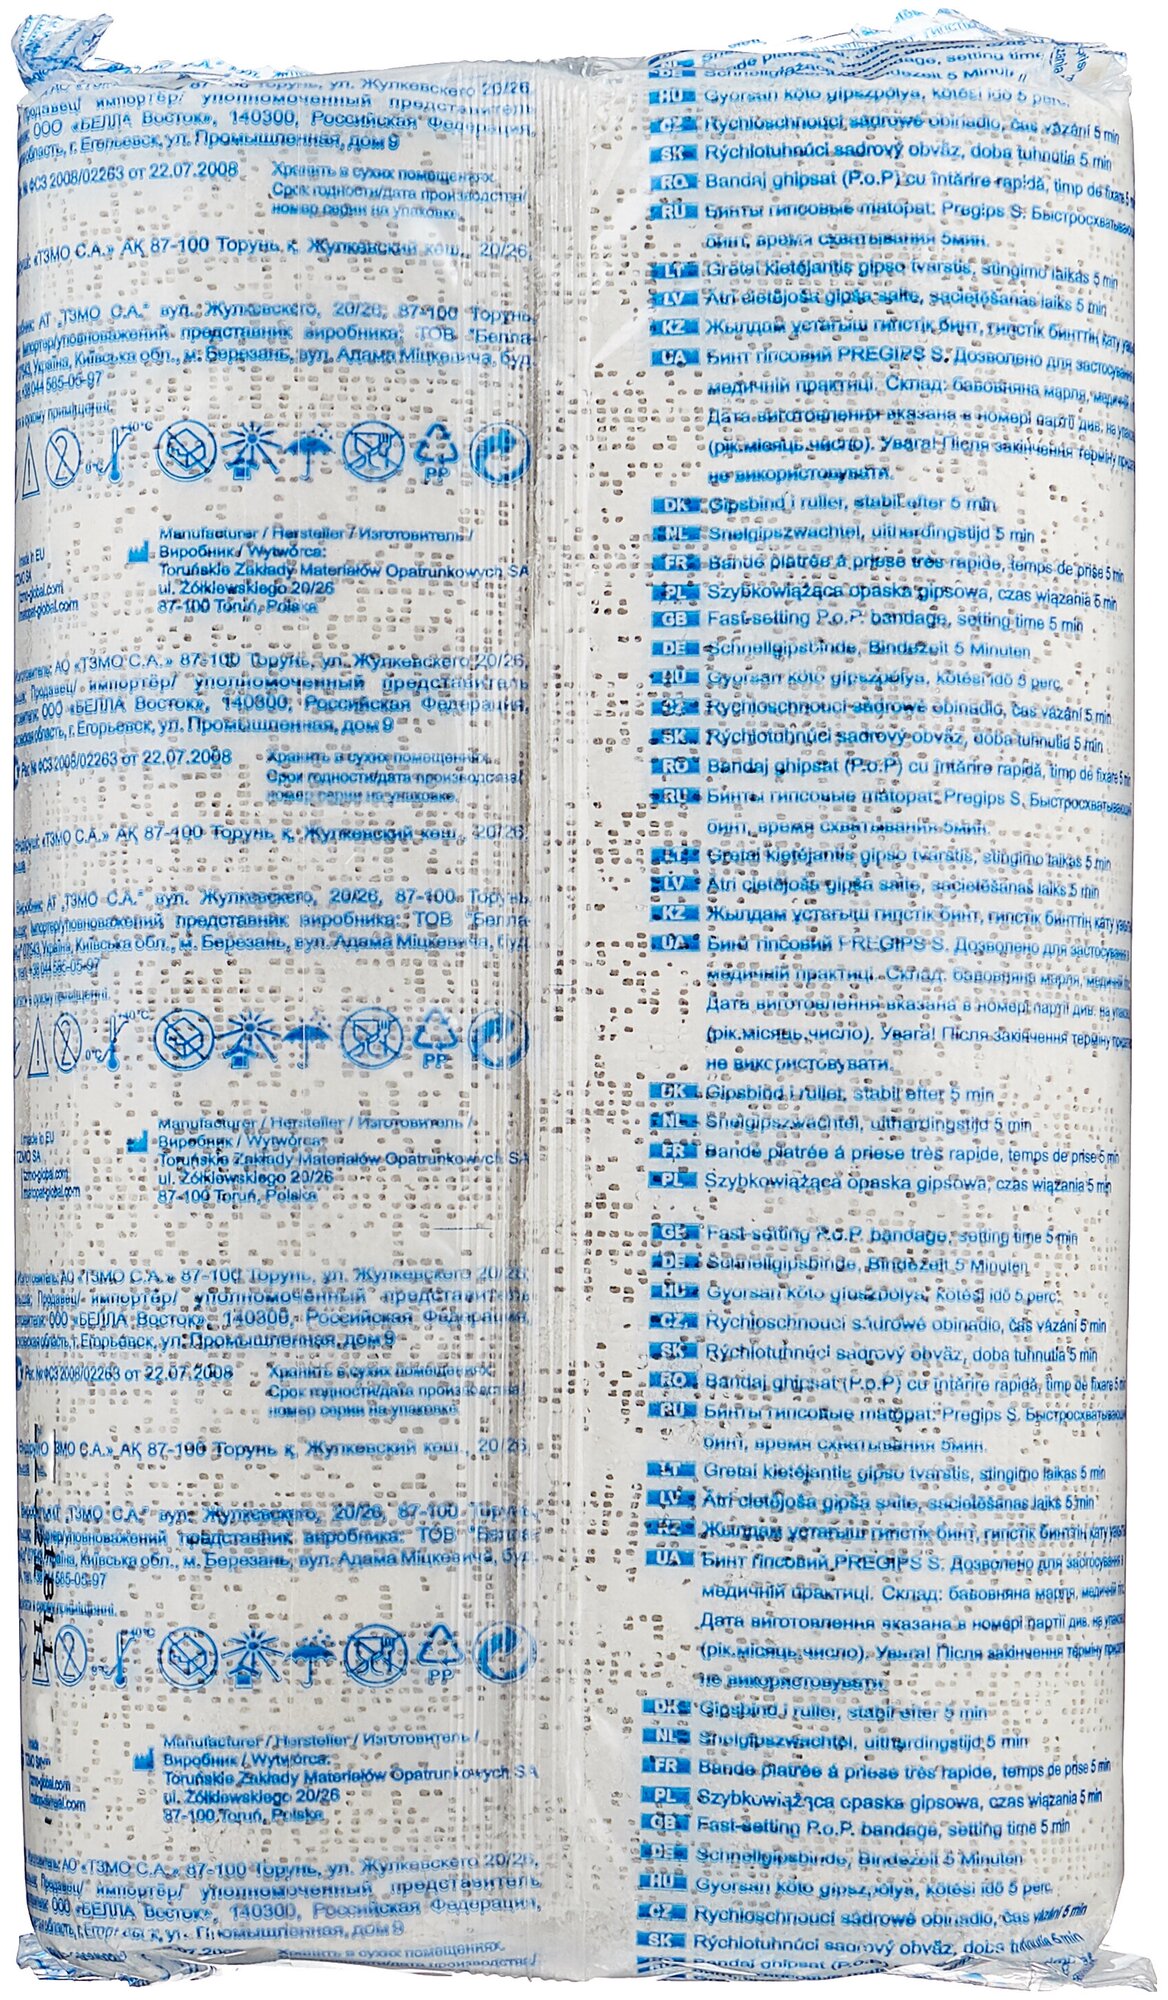 87-100 Торунь, ул. Жулкевского 20/26
Продавец/ импортёр/ уполномоченный представитель
ООО «БЕЛЛА Восток», 140300, Российская Федерация,
область, г. Егорьевск, ул. Промышленная, дом 9
№ ФСЗ 2008/02263 от 22.07.2008
Хранить в сухих помещениях.
Срок годности/дата производства/
номер серии на упаковке.
«ТЗМО С.А.» АҚ 87-100 Торунь қ. Жулкевский көш., 20/26,
АТ „ТЗМО С.А." вул. Жулкевского, 20/26, 87-100 Торунь,
представник виробника: ТОВ "Белла-
Україна, Київська обл., м. Березань, вул. Адама Міцкевича, буд.
+38 044 585-05-97
+40°C
0°C
2
PP
made in EU
TZMO SA
tzmo-global.com
matopat-global.com
Manufacturer / Hersteller / Изготовитель /
Виробник / Wytwórca:
Toruńskie Zakłady Materiałów Opatrunkowych SA
ul. Żółkiewskiego 20/26
87-100 Toruń, Polska
АО «ТЗМО С.А.» 87-100 Торунь, ул. Жулкевского 20/26,
Продавец/ импортёр/ уполномоченный представитель
ООО «БЕЛЛА Восток», 140300, Российская Федерация,
область, г. Егорьевск, ул. Промышленная, дом 9
Рег. № ФСЗ 2008/02263 от 22.07.2008
Хранить в сухих помещениях.
Срок годности/дата производства/
номер серии на упаковке.
«ТЗМО С.А.» АҚ 87-100 Торунь қ. Жулкевский көш., 20/26,
АТ „ТЗМО С.А." вул. Жулкевского, 20/26, 87-100 Торунь,
представник виробника: ТОВ "Белла-
Україна, Київська обл., м. Березань, вул. Адама Міцкевича, буд.
+38 044 585-05-97
+40°C
0°C
2
PP
made in EU
TZMO SA
tzmo-global.com
matopat-global.com
Manufacturer / Hersteller / Изготовитель /
Виробник / Wytwórca:
Toruńskie Zakłady Materiałów Opatrunkowych SA
ul. Żółkiewskiego 20/26
87-100 Toruń, Polska
АО «ТЗМО С.А.» 87-100 Торунь, ул. Жулкевского 20/26,
Продавец/ импортёр/ уполномоченный представитель
ООО «БЕЛЛА Восток», 140300, Российская Федерация,
область, г. Егорьевск, ул. Промышленная, дом 9
Рег. № ФСЗ 2008/02263 от 22.07.2008
Хранить в сухих помещениях.
Срок годности/дата производства/
номер серии на упаковке.
С.А.» АҚ 87-100 Торунь қ. Жулкевский көш., 20/26,
„ТЗМО С.А." вул. Жулкевского, 20/26, 87-100 Торунь,
представник виробника: ТОВ "Белла-
Київська обл., м. Березань, вул. Адама Міцкевича, буд.
585-05-97
+40°C
0°C
2
PP
TZMO SA
Manufacturer / Hersteller / Изготовитель /
Виробник / Wytwórca:
Toruńskie Zakłady Materiałów Opatrunkowych SA
ul. Żółkiewskiego 20/26
87-100 Toruń, Polska
АО «ТЗМО С.А.» 87-100 Торунь, ул. Жулкевского 20/26,
Продавец/ импортёр/ уполномоченный представитель
ООО «БЕЛЛА Восток», 140300, Российская Федерация,
область, г. Егорьевск, ул. Промышленная, дом 9
Хранить в сухих помещениях.
Срок годности/дата производства/
bandage, setting time
DE Schnellgipsbinde, Bindezeit 5 Minuten
HU Gyorsan kötő gipszpólya, kötési idő 5 perc.
CZ Rychloschnoucí sádrové obinadlo, čas vázání 5 min
SK Rýchlotuhnúci sadrový obväz, doba tuhnutia 5 min
RO Bandaj ghipsat (P.o.P) cu întărire rapidă, timp de fixare 5 min
RU Бинты гипсовые matopat: Pregips S. Быстросхватывающий
бинт, время схватывания 5мин.
LT Greitai kietėjantis gipso tvarstis, stingimo laikas 5 min
LV Ātri cietējoša ģipša saite, sacietēšanas laiks 5 min
KZ Жылдам ұстағыш гипстік бинт, гипстік бинттің қату
UA Бинт гіпсовий PREGIPS S. Дозволено для застосування
медичній практиці. Склад: бавовняна марля,
Дата виготовлення вказана в номері партії див. на
(рік.місяць.число). Увага! Після закінчення терміну
не використовувати.
DK Gipsbind i ruller, stabil efter 5 min
NL Snelgipszwachtel, uithardingstijd 5 min
FR Bande platrée à priese très rapide, temps de prise 5 min
PL Szybkowiążąca opaska gipsowa, czas wiązania 5 min
GB Fast-setting P.o.P. bandage, setting time 5 min
DE Schnellgipsbinde, Bindezeit 5 Minuten
HU Gyorsan kötő gipszpólya, kötési idő 5 perc.
CZ Rychloschnoucí sádrové obinadlo, čas vázání 5 min
SK Rýchlotuhnúci sadrový obväz, doba tuhnutia 5 min
RO Bandaj ghipsat (P.o.P) cu întărire rapidă, timp de fixare 5 min
RU Бинты гипсовые matopat: Pregips S. Быстросхватывающий
бинт, время схватывания 5мин.
LT Greitai kietėjantis gipso tvarstis, stingimo laikas 5 min
LV Ātri cietējoša ģipša saite, sacietēšanas laiks 5 min
KZ Жылдам ұстағыш гипстік бинт, гипстік бинттің қату
UA Бинт гіпсовий PREGIPS S. Дозволено для застосування
медичній практиці. Склад: бавовняна марля,
Дата виготовлення вказана в номері партії див. на
(рік.місяць.число). Увага! Після закінчення терміну
не використовувати.
DK Gipsbind i ruller, stabil efter 5 min
NL Snelgipszwachtel, uithardingstijd 5 min
FR Bande platrée à priese très rapide, temps de prise 5 min
PL Szybkowiążąca opaska gipsowa, czas wiązania 5 min
GB Fast-setting P.o.P. bandage, setting time 5 min
DE Schnellgipsbinde, Bindezeit 5 Minuten
HU Gyorsan kötő gipszpólya, kötési idő 5 perc.
CZ Rychloschnoucí sádrové obinadlo, čas vázání 5 min
SK Rýchlotuhnúci sadrový obväz, doba tuhnutia 5 min
RO Bandaj ghipsat (P.o.P) cu întărire rapidă, timp de fixare 5 min
RU Бинты гипсовые matopat: Pregips S. Быстросхватывающий
бинт, время схватывания 5мин.
LT Greitai kietėjantis gipso tvarstis, stingimo laikas 5 min
LV Ātri cietējoša ģipša saite, sacietēšanas laiks 5 min
KZ Жылдам ұстағыш гипстік бинт, гипстік бинттің қату
UA Бинт гіпсовий PREGIPS S. Дозволено для застосування
медичній практиці. Склад: бавовняна марля,
Дата виготовлення вказана в номері партії див. на
(рік.місяць.число). Увага! Після закінчення терміну
не використовувати.
DK Gipsbind i ruller, stabil efter 5 min
NL Snelgipszwachtel, uithardingstijd 5 min
FR Bande platrée à priese très rapide, temps de prise 5 min
PL Szybkowiążąca opaska gipsowa, czas wiązania 5 min
GB Fast-setting P.o.P. bandage, setting time 5 min
DE Schnellgipsbinde, Bindezeit 5 Minuten
HU Gyorsan kötő gipszpólya, kötési idő 5 perc.
CZ Rychloschnoucí sádrové obinadlo, čas vázání 5 min
SK Rýchlotuhnúci sadrový obväz, doba tuhnutia 5 min
Bandaj ghipsat (P.o.P.)